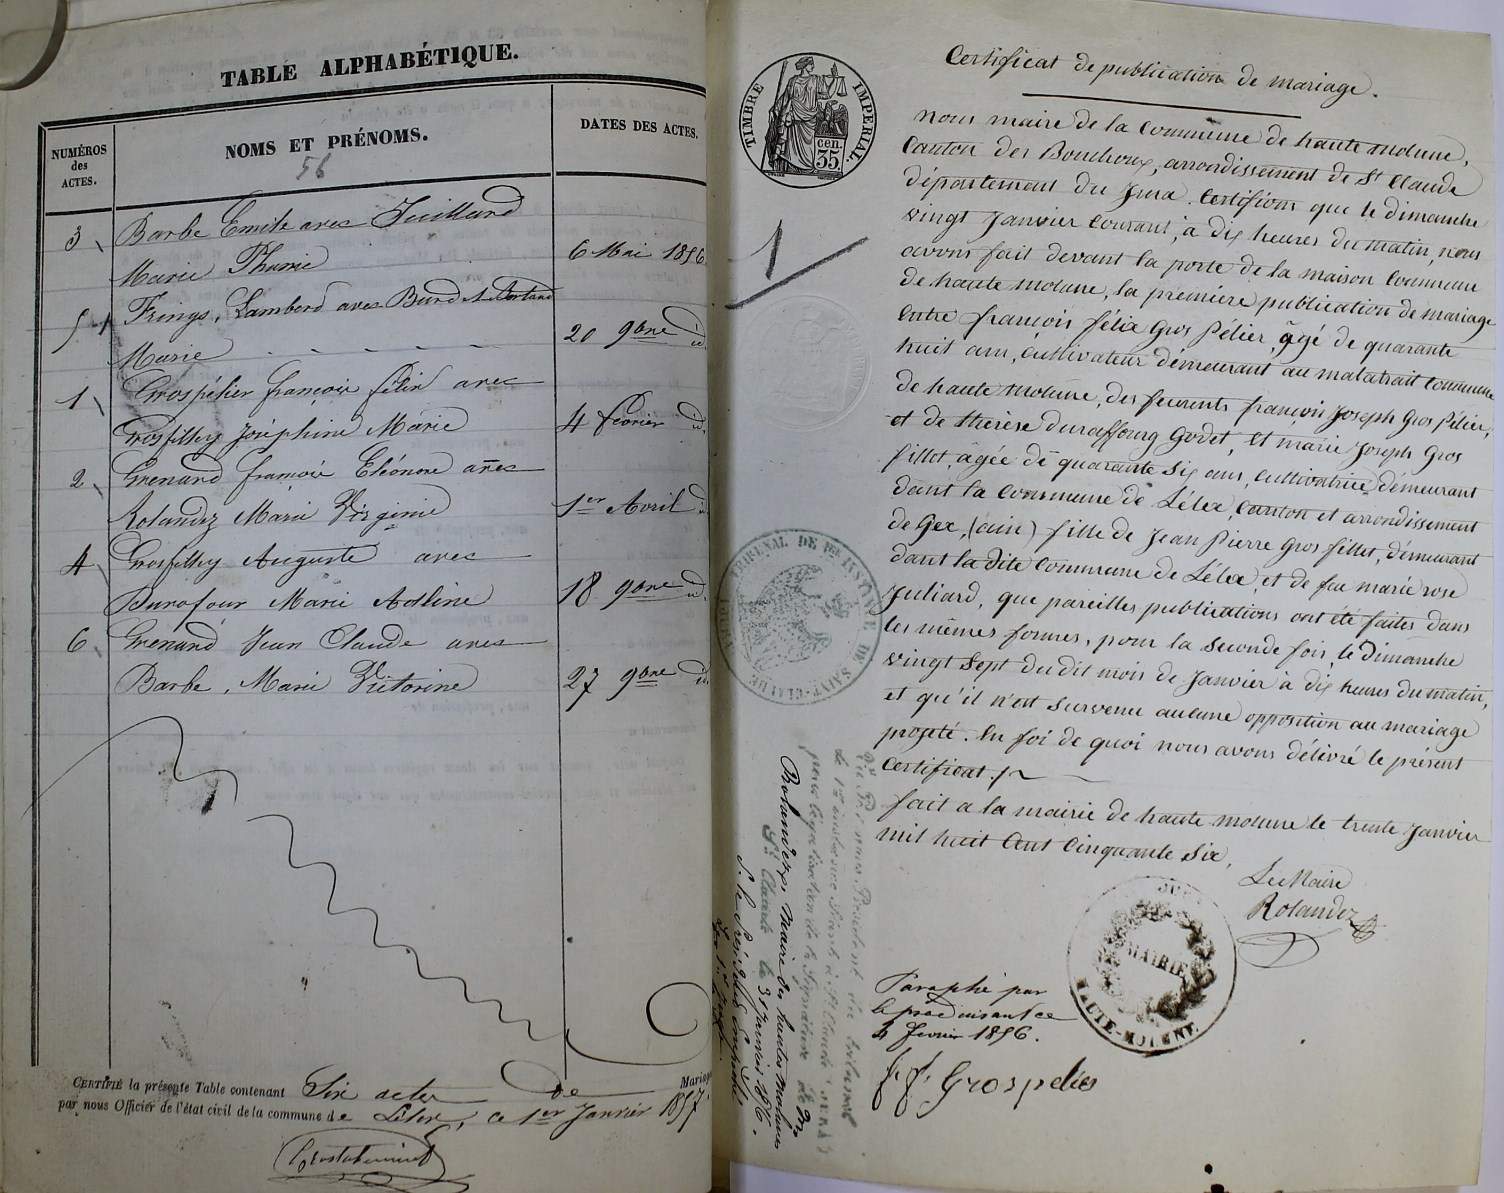 TABLE ALPHABÉTIQUE.
NUMÉROS
des
ACTES.
NOMS ET PRÉNOMS.
56
DATES DES ACTES.
3 Barbe Emile avec Juillard
Marie Phanie 6 Mai 1856
5 Frings, Lambord avec
Marie 20 9bre id.
1 Grospélier françois félix avec
Grosfilley Joséphine Marie 4 fevrier id.
2 Grenard françois Eléonore avec
Rolandez Marie Virginie 1er Avril id.
4 Grosfilley Auguste avec
Marie Adeline 18 9bre id.
6 Grenard Jean Claude avec
Barbe, Marie Victorine 27 9bre id.
CERTIFIÉ la présente Table contenant Six actes de Mariage
par nous Officier de l'état civil de la commune de Lélex, ce 1er Janvier 1857.
TIMBRE IMPÉRIAL.
35 cen.
1
Certificat de publication de mariage.
Nous maire de la Commune de haute molune,
Canton des Bouchoux, arrondissement de St Claude
département du Jura. Certifions que le dimanche
vingt Janvier Courant, à dix heures du matin, nous
avons fait devant la porte de la maison Commune
de haute molune, la première publication de mariage
entre françois félix Gros Pélier, âgé de quarante
huit ans, cultivateur démeurant au malatrait Commune
de haute molune, des feurents françois Joseph Gros Pélier,
et de thérèse duraffourg Godet, et marie Joseph Gros
fillet, âgée de quarante six ans, cultivatrice démeurant
dans la Commune de Lélex, canton et arrondissement
de Gex, (ain) fille de Jean Pierre Gros fillet, démeurant
dans la dite Commune de Lélex, et de feu marie rose
Juliard, que pareilles publications ont été faites dans
les mêmes formes, pour la seconde fois, le dimanche
vingt sept dudit mois de Janvier à dix heures du matin,
et qu'il n'est survenu aucune opposition au mariage
projeté. En foi de quoi nous avons délivré le présent
Certificat.
fait a la mairie de haute molune le trente Janvier
mil huit cent cinquante six.
Le Maire
Rolandez
MAIRIE
HAUTE-MOLUNE
JURA
Paraphé par
le
4 fevrier 1856.
f. f. Grospelier
TRIBUNAL DE 1ère INSTANCE DE SAINT-CLAUDE
Vu Par nous, Président du tribunal
de 1ère instance Séant à St Claude (Jura)
pour legalisation de la Signature de Mr
Rolandez, Maire des hautes molunes
St Claude le 31 Janvier 1856.